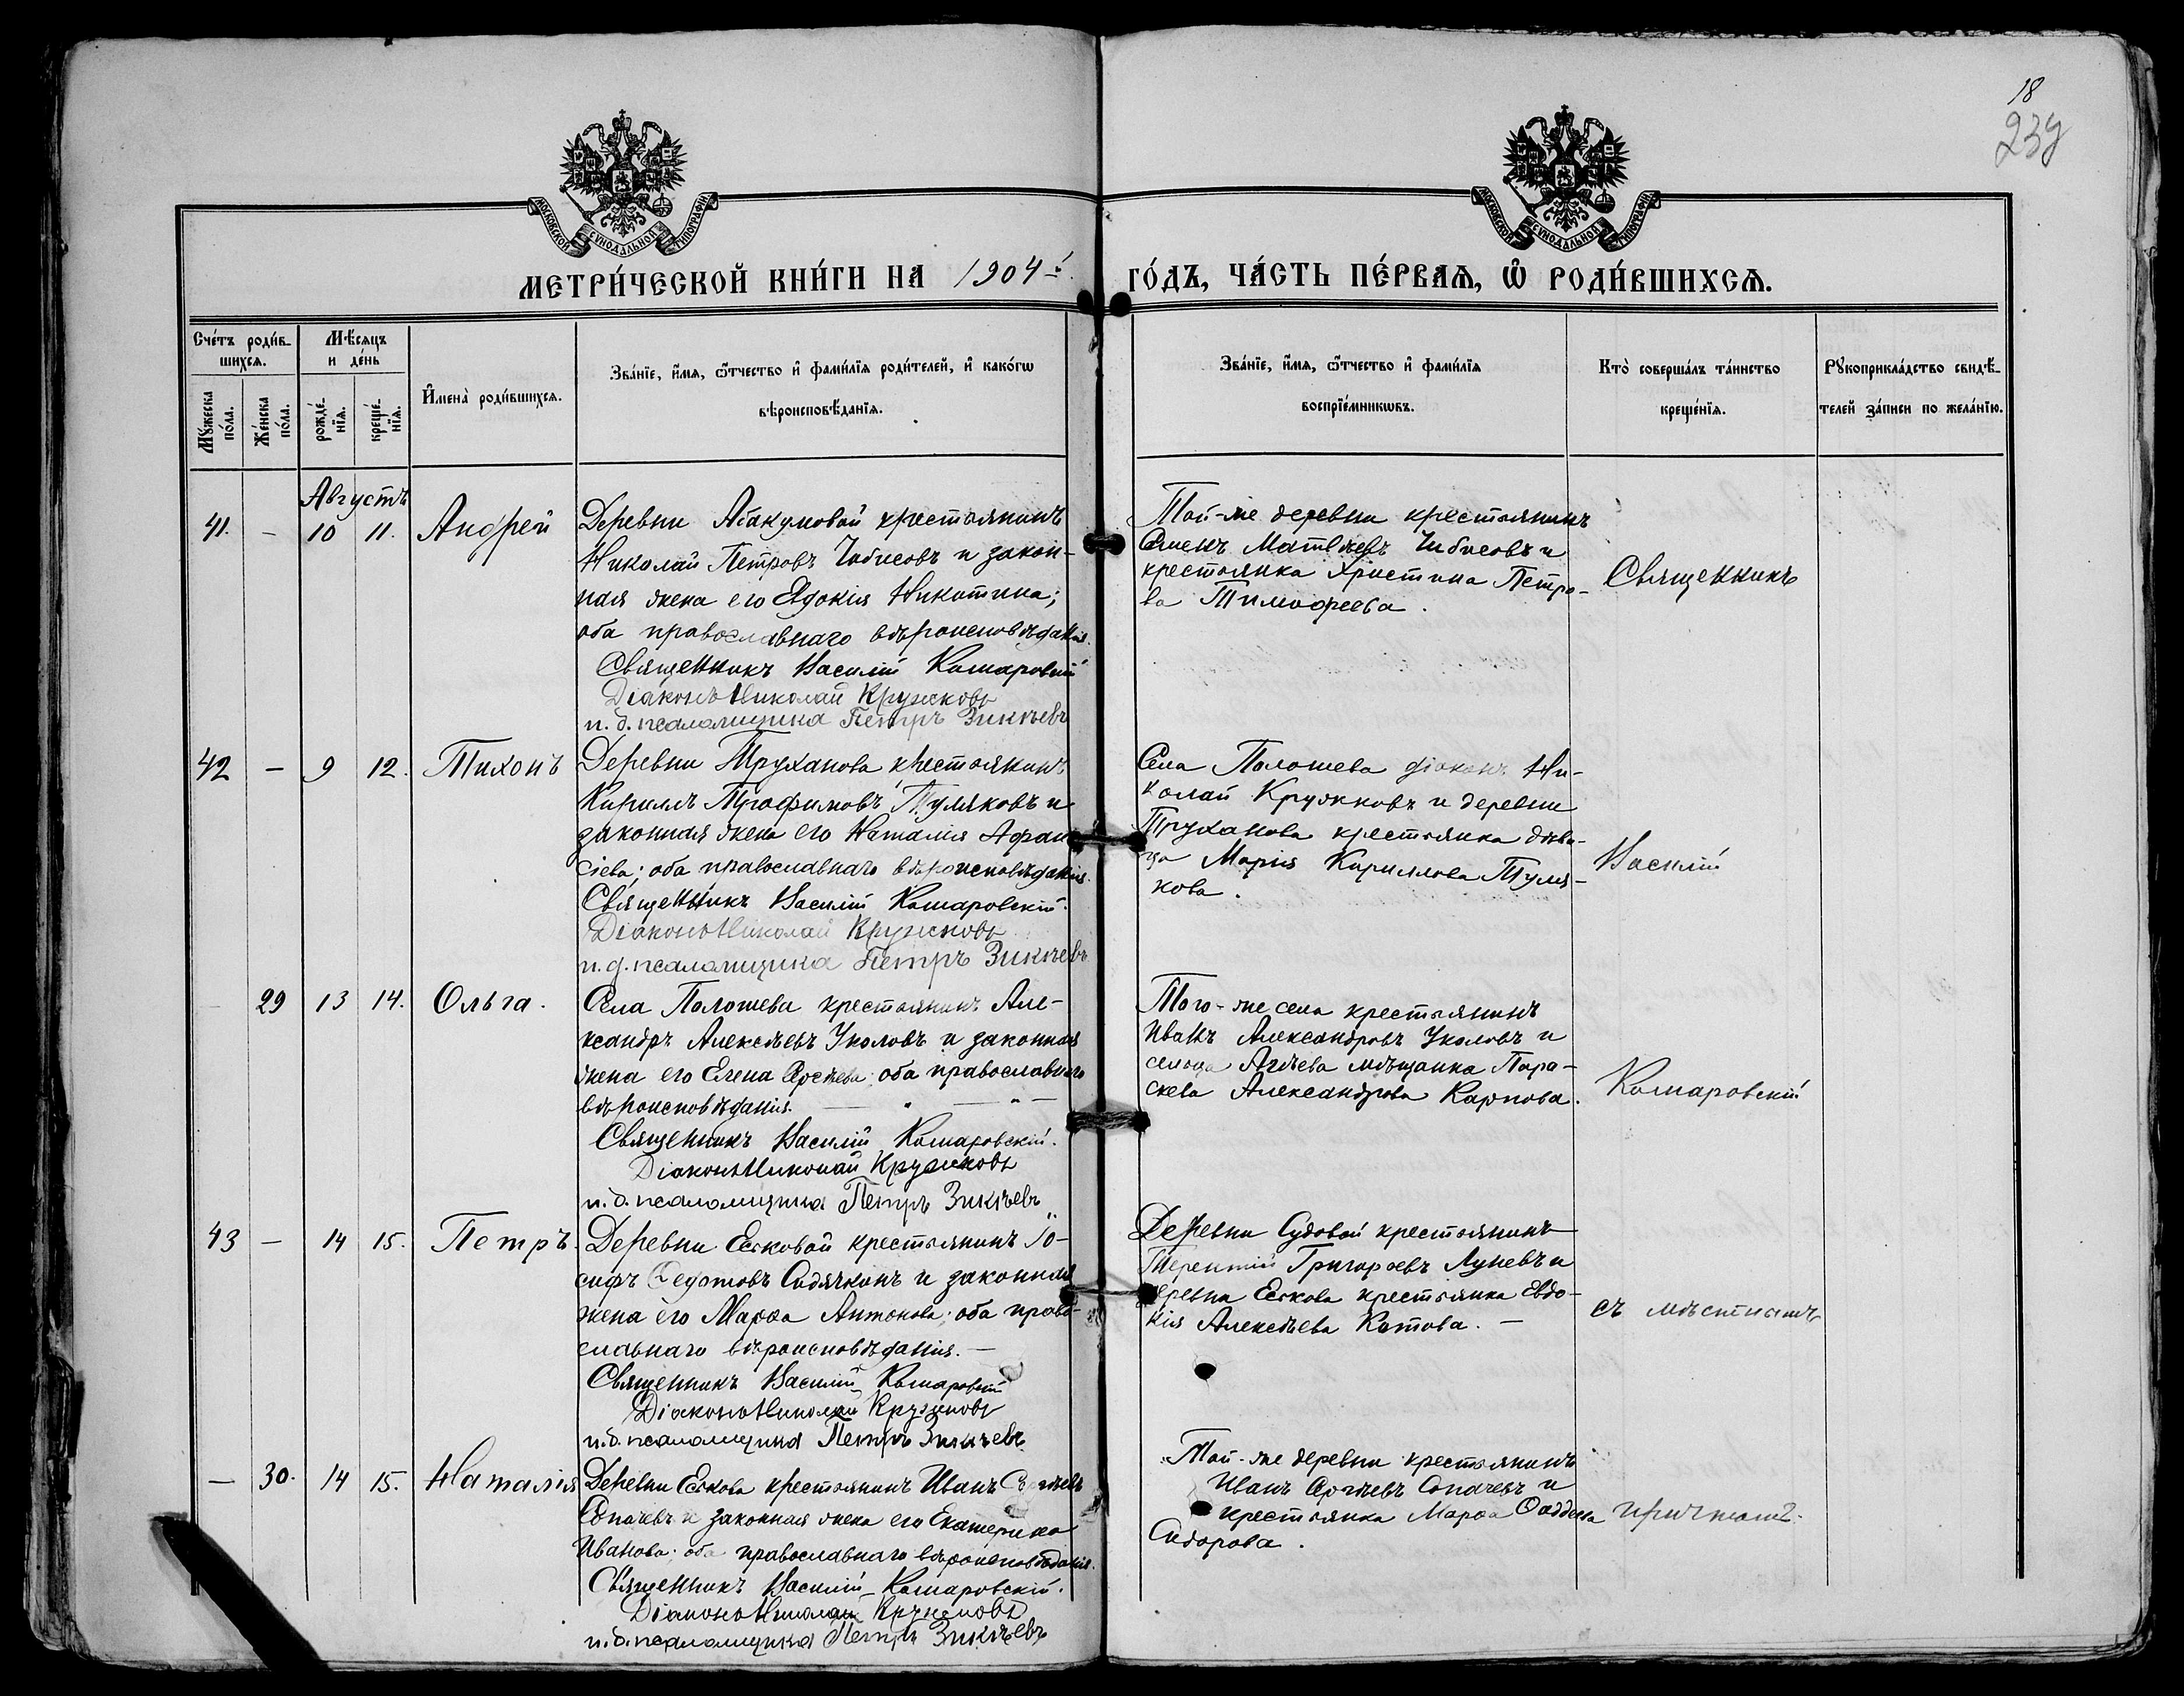 18
239
МОСКОВСКОЙ СѴНОДАЛЬНОЙ ТИПОГРАФІИ
МОСКОВСКОЙ СѴНОДАЛЬНОЙ ТИПОГРАФІИ
МЕТРИ́ЧЕСКОЙ КНИ́ГИ НА 1904-й
ГО́ДЪ, ЧА́СТЬ ПЕ́РВАѦ, Ѡ҆ РОДИ́ВШИХСѦ.
Сче́тъ роди́в-
шихсѧ.
Мꙋ́жеска по́ла.
Же́нска по́ла.
Мѣ́сѧцъ
и де́нь
рожде́-нїѧ.
креще́-нїѧ.
И҆мена̀ роди́вшихсѧ.
Зва́нїе, и҆́мѧ, ѻ҆́тчество и҆ фами́лїѧ роди́телей, и҆ како́гѡ
вѣроисповѣ́данїѧ.
Зва́нїе, и҆́мѧ, ѻ҆́тчество и҆ фами́лїѧ
воспрїе́мникѡвъ.
Кто̀ соверша́лъ та́инство
креще́нїѧ.
Рꙋкоприкла́дство свидѣ́-
телей за́писи по жела́нїю.
Августъ
41. - 10 11. Андрей
Деревни Абакумовой крестьянинъ
Николай Петровъ Чибисовъ и закон-
ная жена его Евдокія Никитина;
оба православнаго вѣроисповѣданія.
Священникъ Василій Комаровскій
Діаконъ Николай Кружковъ
и. д. псаломщика Петръ Зикѣевъ
Той-же деревни крестьянинъ
Семенъ Матвѣевъ Чибисовъ и
крестьянка Христина Петро-
ва Тимофеева.
Священникъ
42 - 9 12. Тихонъ
Деревни Труханова крестьянинъ
Кириллъ Трофимовъ Туляковъ и
законная жена его Наталія Афана-
сіева; оба православнаго вѣроисповѣданія.
Священникъ Василій Комаровскій.
Діаконъ Николай Кружковъ
и. д. псаломщика Петръ Зикѣевъ
Села Полошева діаконъ Ни-
колай Кружковъ и деревни
Труханова крестьянка дѣви-
ца Марія Кириллова Туля-
кова.
Василій
29 13 14. Ольга.
Села Полошева крестьянинъ Але-
ксандръ Алексѣевъ Уколовъ и законная
жена его Елена; оба православнаго
вѣроисповѣданія.
Священникъ Василій Комаровскій.
Діаконъ Николай Кружковъ
и. д. псаломщика Петръ Зикѣевъ
Того-же села крестьянинъ
Иванъ Александровъ Уколовъ и
сельца мѣщанка Пара-
скева Александрова Карпова.
Комаровскій
43 - 14 15. Петръ.
Деревни Еськовой крестьянинъ Іо-
сифъ Федотовъ и законная
жена его Марѳа Антонова; оба право-
славнаго вѣроисповѣданія. -
Священникъ Василій Комаровскій
Діаконъ Николай Кружковъ
и. д. псаломщика Петръ Зикѣевъ
Деревни Судовой крестьянинъ
Терентій Григорьевъ Луневъ и
деревни Еськова крестьянка Евдо-
кія Алексѣева Котова. -
съ мѣстнымъ
- 30. 14 15. Наталія
Деревни Еськова крестьянинъ Иванъ Сергѣевъ
и законная жена его Екатерина
Иванова; оба православнаго вѣроисповѣданія.
Священникъ Василій Комаровскій.
Діаконъ Николай Кружковъ
и. д. псаломщика Петръ Зикѣевъ
Той-же деревни крестьянинъ
Иванъ Сергѣевъ и
крестьянка Марѳа Ѳаддеева
Сидорова.
причтомъ.